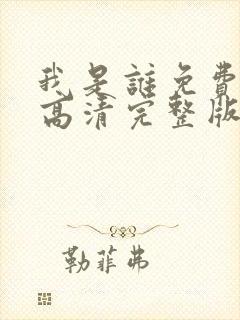 我是誰免費
高清完整版
勒菲弗